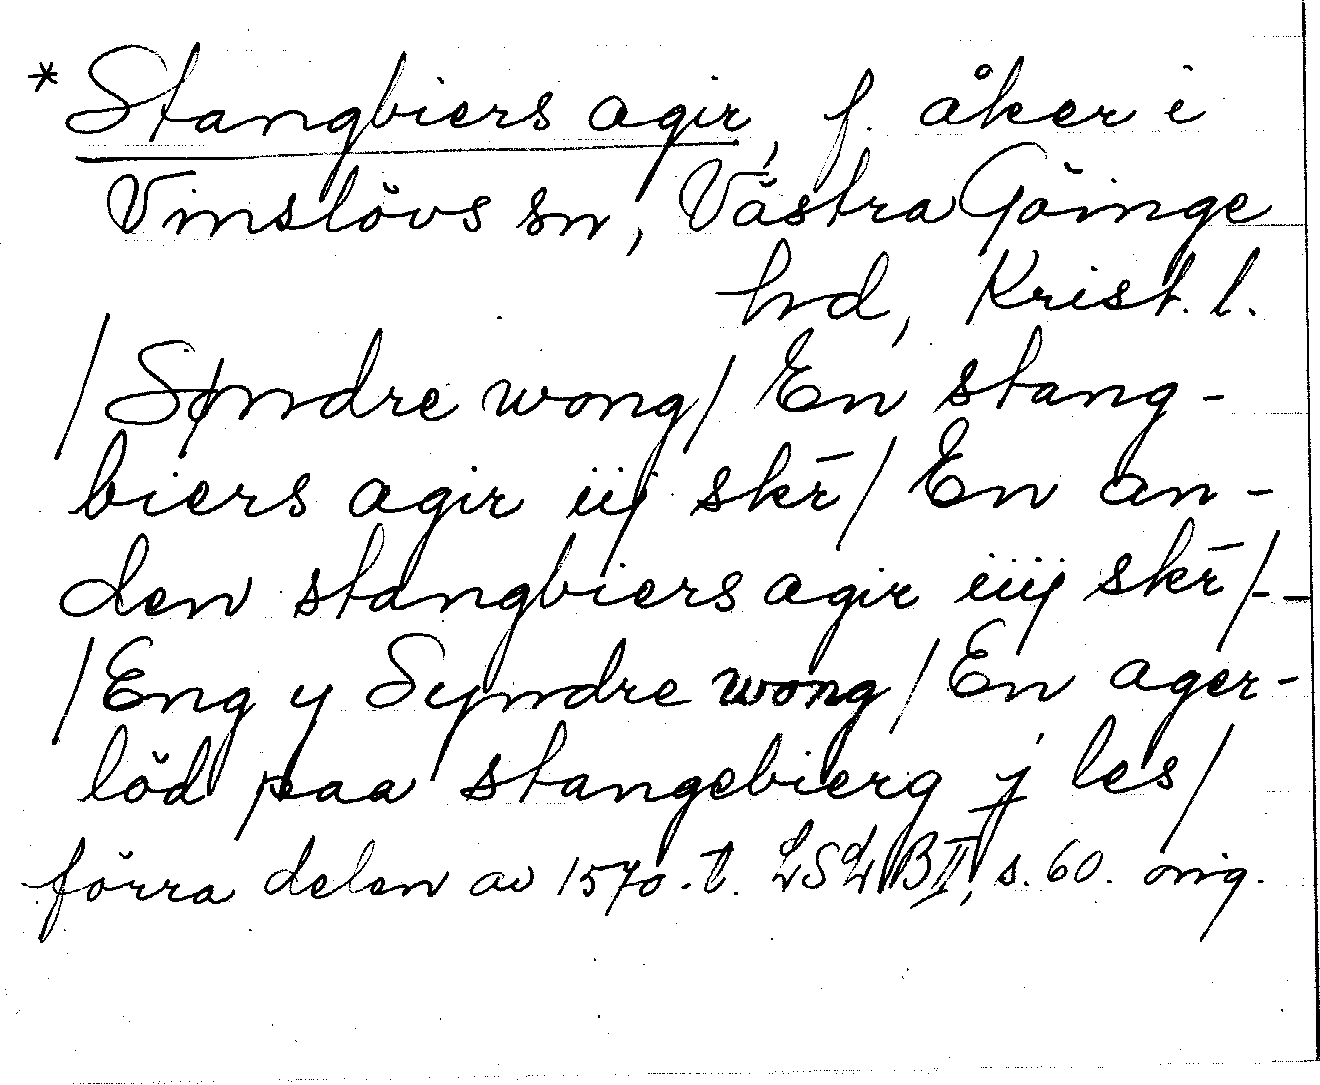 * Stangbiers agir, f. åker i
Vinslövs sn, Västra Göinge
hd, Krist. l.
/Syndre wong/ En stang-
biers agir iij skr̄/ En an-
den stangbiers agir iiij skr̄/--
/Eng y Syndre wong/ En ager-
löd paa stangebierg j les/
förra delen av 1570.t. LSL BII, s. 60. orig.